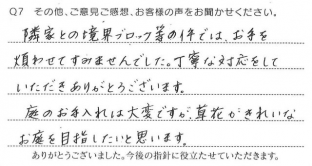 Q7 その他、ご意見ご感想、お客様の声をお聞かせください。
隣家との境界ブロック等の件では、お手を
煩わせてすみませんでした。丁寧な対応をして
いただきありがとうございます。
庭のお手入れは大変ですが、草花がきれいな
お庭を目指したいと思います。
ありがとうございました。今後の指針に役立たせていただきます。